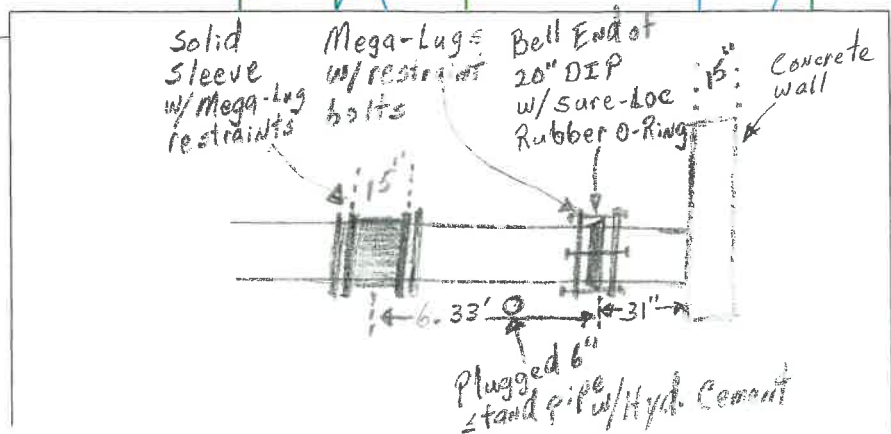 Solid
Sleeve
w/ Mega-Lug
restraints
Mega-Lugs
w/restraint
bolts
Bell End of
20" DIP
w/ Sure-Loc
Rubber O-Ring
15"
Concrete
wall
15"
6.33'
31"
Plugged 6"
stand pipe w/Hyd. Cement